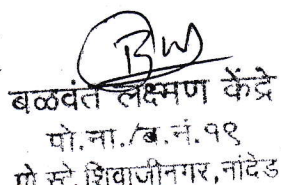 बळवंत लक्ष्मण केंद्रे
पो.ना./ब.नं.१९
पो.स्टे.शिवाजीनगर,नांदेड